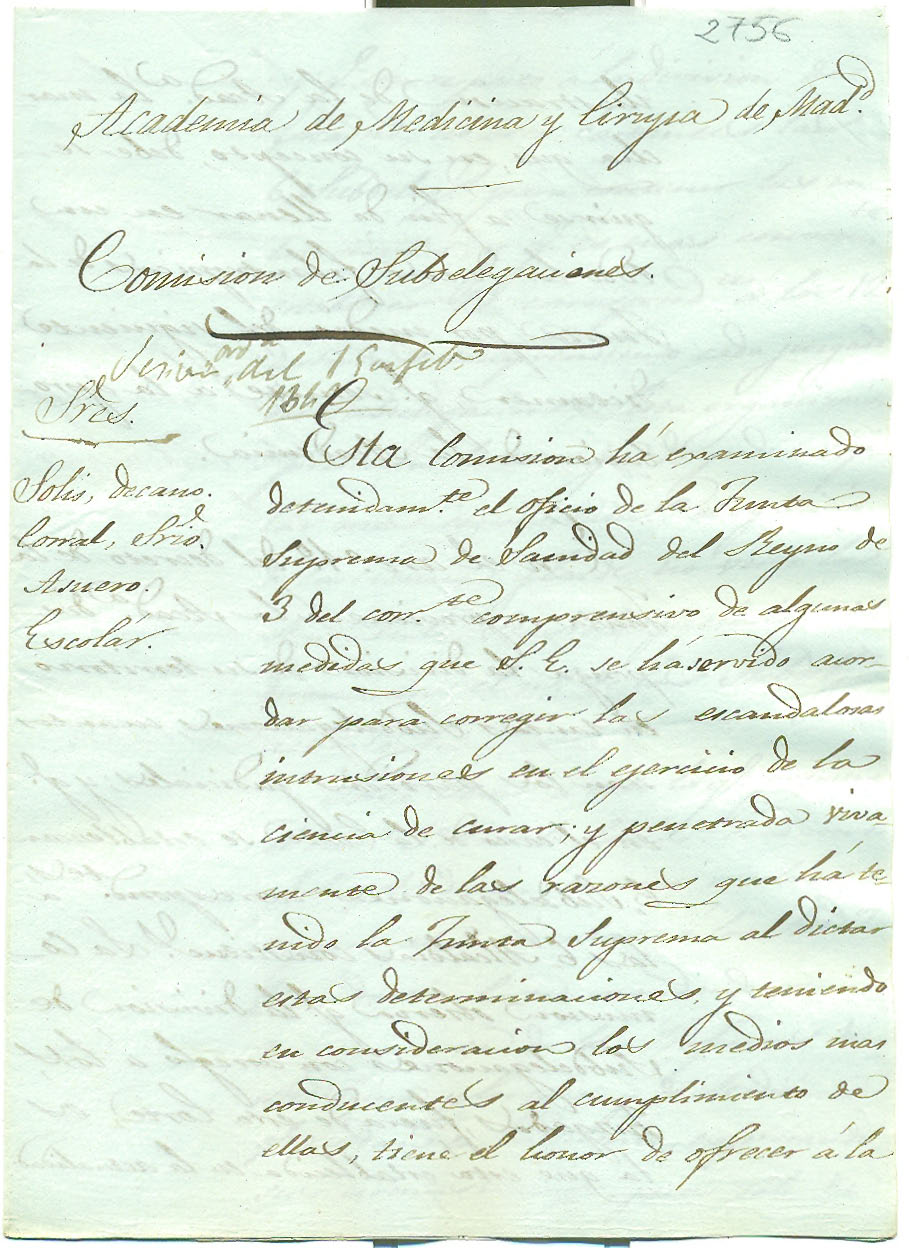 2756
Academia de Medicina y Cirugia de Mad.d
Comision de Subdelegaciones.
del 15
Sres.
Solis, decano.
Corral, Srio.
Asuero.
Escolár.
Esta Comision há examinado
detenidam.te el oficio de la Junta
Suprema de Sanidad del Reyno de
3 del corr.te comprensivo de algunas
medidas que S. E. se há servido acor-
dar para corregir las escandalosas
intrusiones en el ejercicio de la
ciencia de curar; y penetrada viva-
mente de las razones que há te-
nido la Junta Suprema al dictar
estas determinaciones, y teniendo
en consideracion los medios mas
conducentes al cumplimiento de
ellas, tiene el honor de ofrecer á la